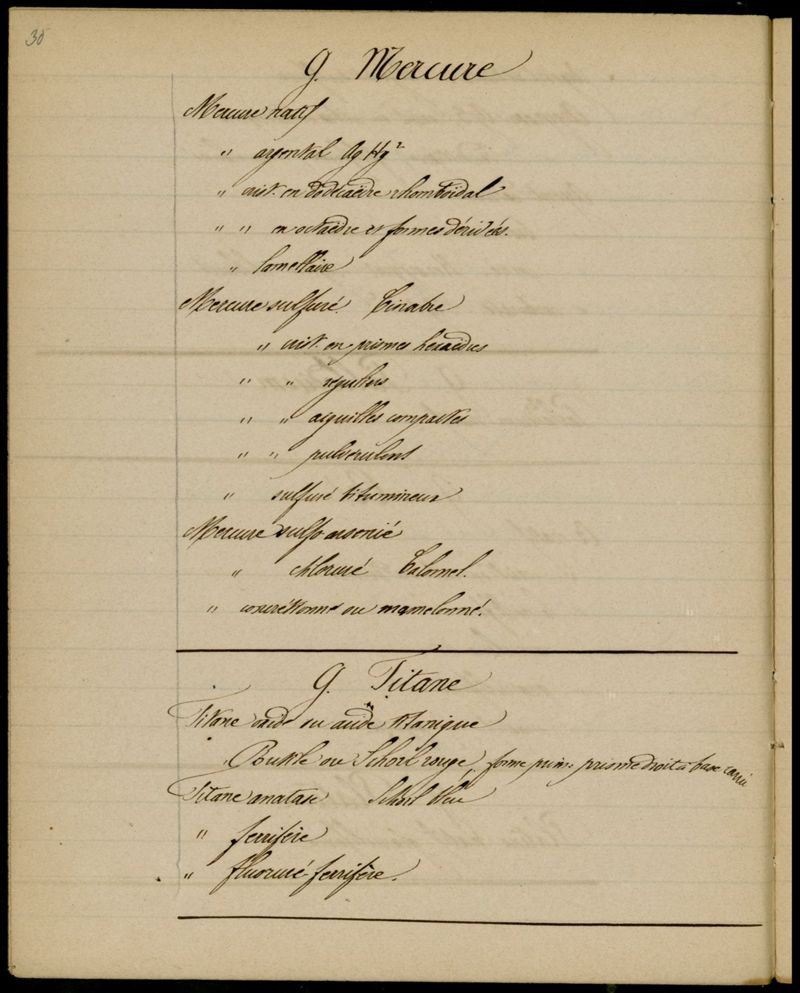 35
G. Mercure
Mercure natif
" argental Ag Hg²
" crist. en dodécaèdre rhomboïdal
" " en octaèdre et formes dérivées.
" lamellaire
Mercure sulfuré. Cinabre
" crist. en prismes hexaèdres
" " réguliers
" " aiguilles compactes
" " pulvérulent
" sulfuré bitumineux
Mercure sulfo arsenié
" chloruré Calomel.
" concrétionné ou mamelonné.
G. Titane
Titane oxidé ou acide titanique
Rutile ou Schorl rouge, forme prim: prisme droit à base carrée
Titane anatase Schorl bleu
" ferrifère
" fluoruré ferrifère.